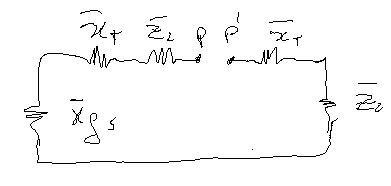 x̄_T z̄_2 P P' x̄_T
x̄_gs z̄_2